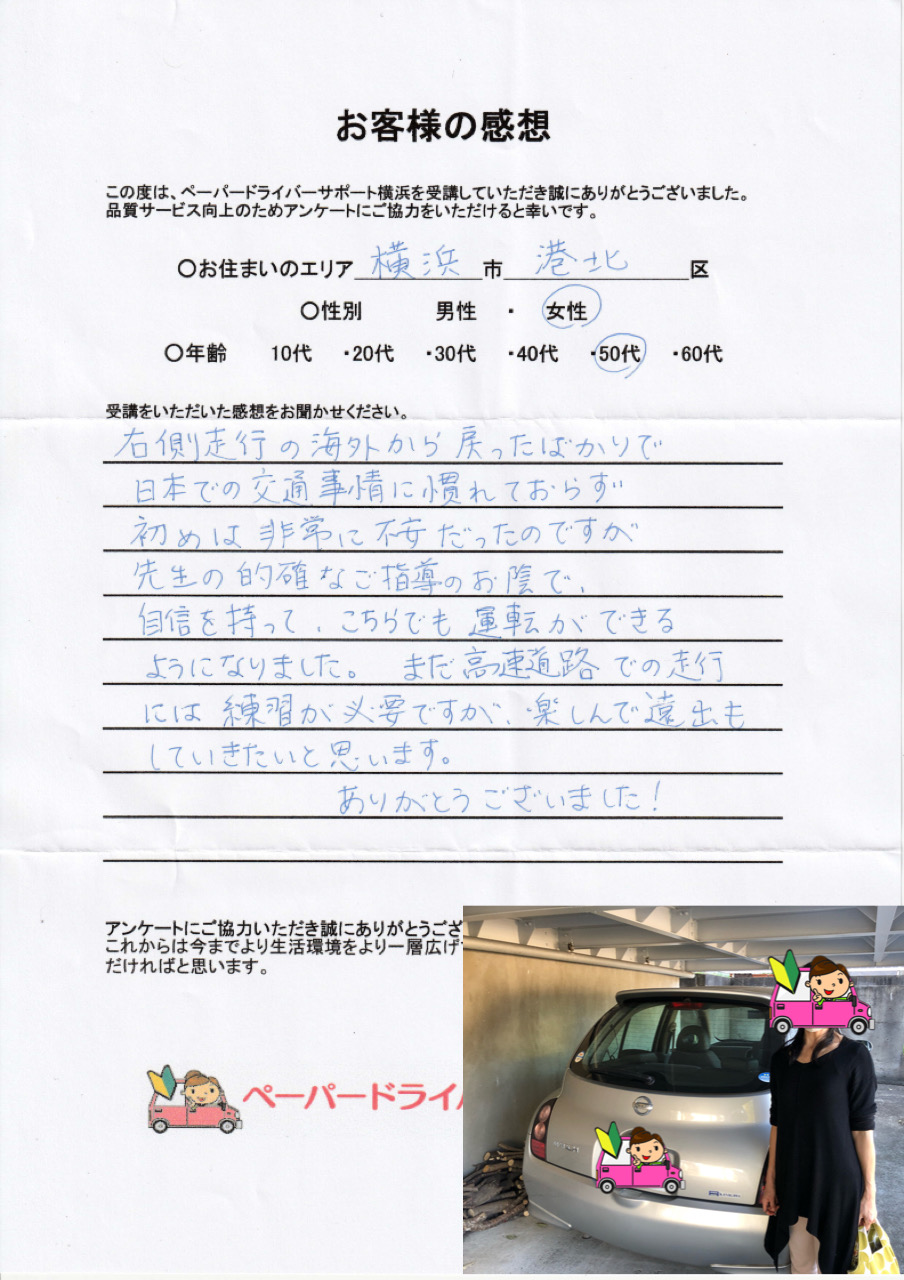 お客様の感想
この度は、ペーパードライバーサポート横浜を受講していただき誠にありがとうございました。
品質サービス向上のためアンケートにご協力をいただけると幸いです。
○お住まいのエリア 横浜 市 港北 区
○性別 男性 ・ 女性
○年齢 10代 ・20代 ・30代 ・40代 ・50代 ・60代
受講をいただいた感想をお聞かせください。
右側走行の海外から戻ったばかりで
日本での交通事情に慣れておらず
初めは非常に不安だったのですが
先生の的確なご指導のお陰で、
自信を持って、こちらでも運転ができる
ようになりました。 まだ高速道路での走行
には練習が必要ですが、楽しんで遠出も
していきたいと思います。
ありがとうございました!
アンケートにご協力いただき誠にありがとうござ
これからは今までより生活環境をより一層広げ
だければと思います。
ペーパードライ